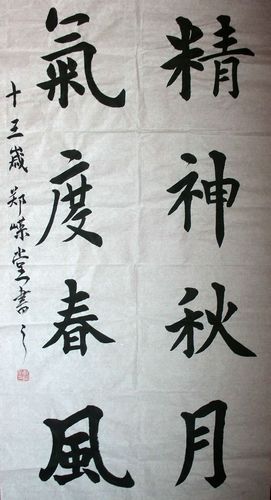 精神秋月
氣度春風
十三歲郑嵘堂書之